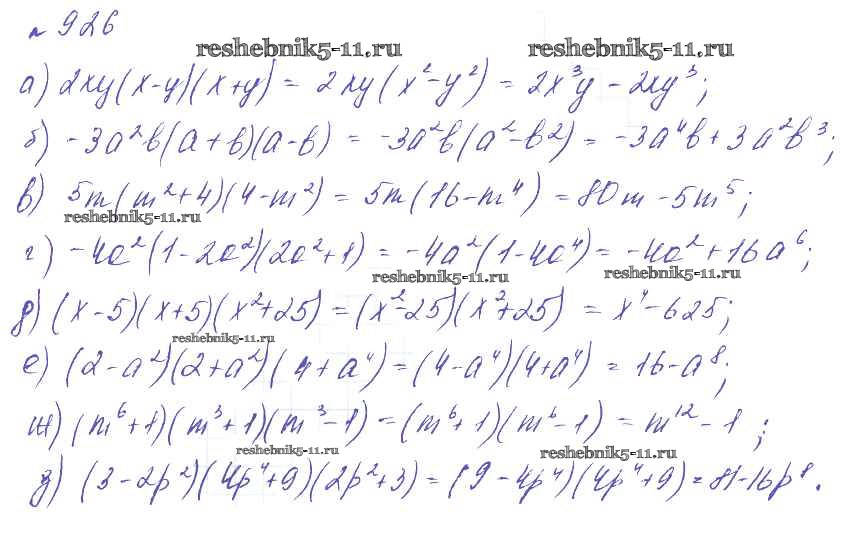 № 926
reshebnik5-11.ru reshebnik5-11.ru
а) 2xy(x-y)(x+y) = 2xy(x²-y²) = 2x³y - 2xy³;
б) -3a²b(a+b)(a-b) = -3a²b(a²-b²) = -3a⁴b + 3a²b³;
в) 5m(m²+4)(4-m²) = 5m(16-m⁴) = 80m - 5m⁵;
reshebnik5-11.ru
г) -4a²(1-2a²)(2a²+1) = -4a²(1-4a⁴) = -4a² + 16a⁶;
reshebnik5-11.ru reshebnik5-11.ru
д) (x-5)(x+5)(x²+25) = (x²-25)(x²+25) = x⁴-625;
reshebnik5-11.ru
е) (2-a²)(2+a²)(4+a⁴) = (4-a⁴)(4+a⁴) = 16-a⁸;
ж) (m⁶+1)(m³+1)(m³-1) = (m⁶+1)(m⁶-1) = m¹²-1;
reshebnik5-11.ru reshebnik5-11.ru
з) (3-2p²)(4p⁴+9)(2p²+3) = (9-4p⁴)(4p⁴+9) = 81-16p⁸.